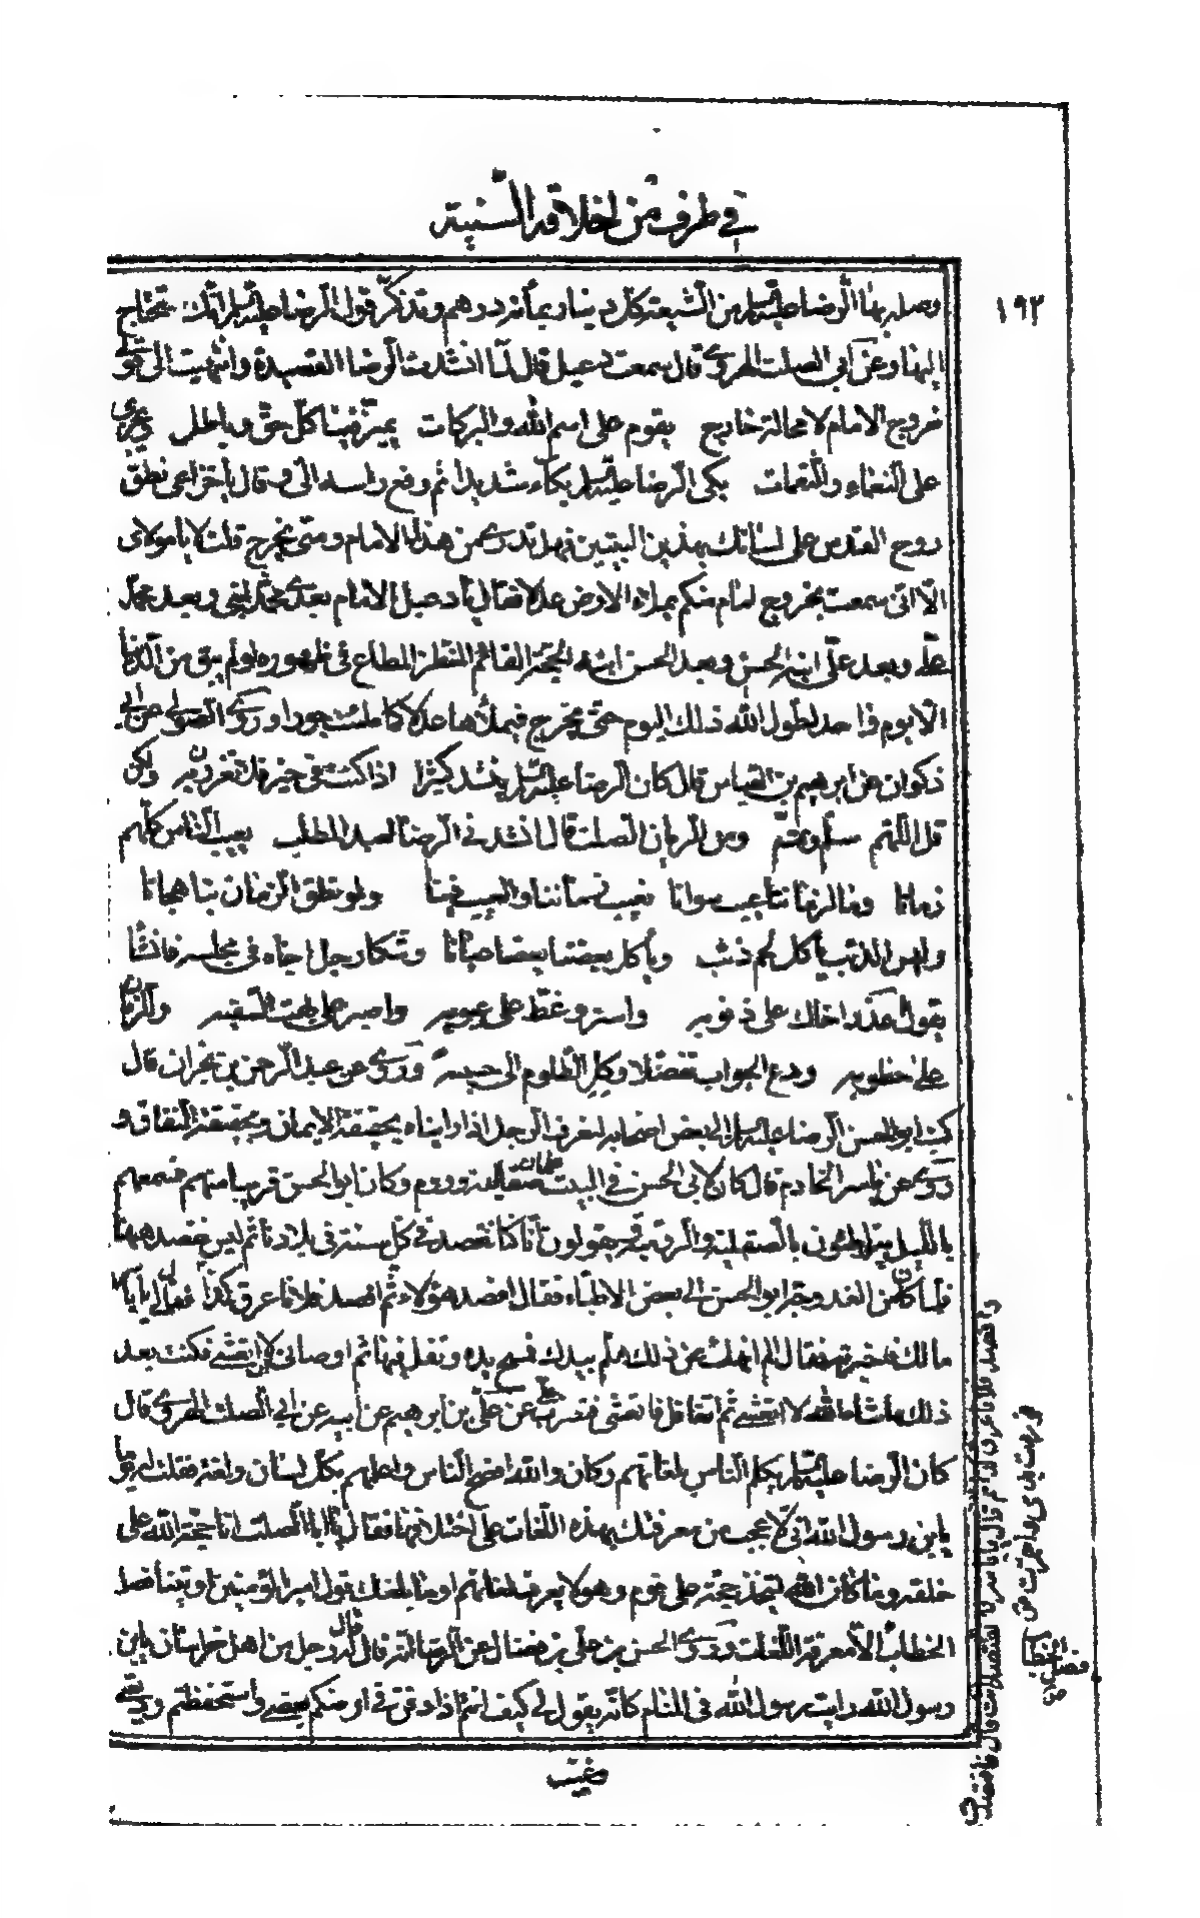 في طرف من اخلاقه السنية
١٩٢
وصله بها الرضا عليه السلام من الشيعة كل دينار بمائة درهم وتذكر قول الرضا عليه السلام انك تحتاج
اليها وعن ابي الصلت الهروي قال سمعت دعبل قال لما انشدت الرضا القصيدة وانتهيت الى قولي
خروج الامام لا محالة خارج يقوم على اسم الله والبركات يميز فينا كل حق وباطل ويجزي
على النعماء والنقمات بكى الرضا عليه السلام بكاء شديدا ثم رفع راسه الي وقال يا خزاعي نطق
روح القدس على لسانك بهذين البيتين فهل تدري من هذا الامام ومتى يخرج قلت لا يا مولاى
الا انى سمعت بخروج امام منكم يملاء الارض عدلا فقال يا دعبل الامام بعدي محمد ابني وبعد محمد
علي وبعد علي ابنه الحسن وبعد الحسن ابنه الحجة القائم المنتظر المطاع في ظهوره لو لم يبق من الدنيا
الا يوم واحد لطول الله ذلك اليوم حتى يخرج فيملأها عدلا كما ملئت جورا وروى الصولي عن ابي
ذكوان عن ابرهيم بن العباس قال كان الرضا عليه السلام ينشد كثيرا اذا كنت في خير فلا تغرر به ولكن
قل اللهم سلم وتمم وعن الريان الصلت قال انشدني الرضا لعبد المطلب يعيب الناس كلهم
زمانا وما لزماننا عيب سوانا نعيب زماننا والعيب فينا ولو نطق الزمان بنا هجانا
وليس الذئب ياكل لحم ذئب وياكل بعضنا بعضا عيانا وشكا رجل اخاه في مجلسه فانشأ
يقول اعذر اخاك على ذنوبه واستر وغط على عيوبه واصبر على بهت السفيه وللزمان
على خطوبه ودع الجواب تفضلا وكل الظلوم الى حسيبه وروي عن عبد الرحمن بن نجران قال
كتب ابو الحسن الرضا عليه السلام الى بعض اصحابه لنعرف الرجل اذا رايناه بحقيقة الايمان وبحقيقة النفاق و
روي عن ياسر الخادم قال كان لابي الحسن في البيت صقالبة وروم وكان ابو الحسن قريبا منهم فسمعهم
بالليل يتراطنون بالصقلبية والرومية ويقولون انا كنا نفصد في كل سنة في بلادنا ثم ليس نفصد ههنا
فلما كان من الغد وجه ابو الحسن الى بعض الاطباء فقال افصد هؤلاء ثم افصد فلانا عرق كذا فقال لي يا ياسر
مالك فاخبرته فقال الم انهك عن ذلك هلم بيدك فمسح يده وتفل فيها ثم اوصاني لا اتعشى فكنت بعد
ذلك ما شاء الله لا اتعشى ثم اتغافل فاتعشى فتضرب علي عن علي بن ابرهيم عن ابيه عن ابي الصلت الهروي قال
كان الرضا عليه السلام يكلم الناس بلغاتهم وكان والله افصح الناس واعلمهم بكل لسان ولغة فقلت له يوما
يابن رسول الله اني لاعجب من معرفتك بهذه اللغات على اختلافها فقال يا ابا الصلت انا حجة الله على
خلقه وما كان الله ليتخذ حجة على قوم وهو لا يعرف لغاتهم اوما بلغك قول امير المؤمنين اوتينا فصل
الخطاب الا معرفة اللغات وروي الحسن بن علي بن فضال عن الرضا انه قال له رجل من اهل خراسان يابن
رسول الله رايت رسول الله في المنام كانه يقول لي كيف انتم اذا دفن في ارضكم بعضي واستحفظتم وديعتي
وغيب